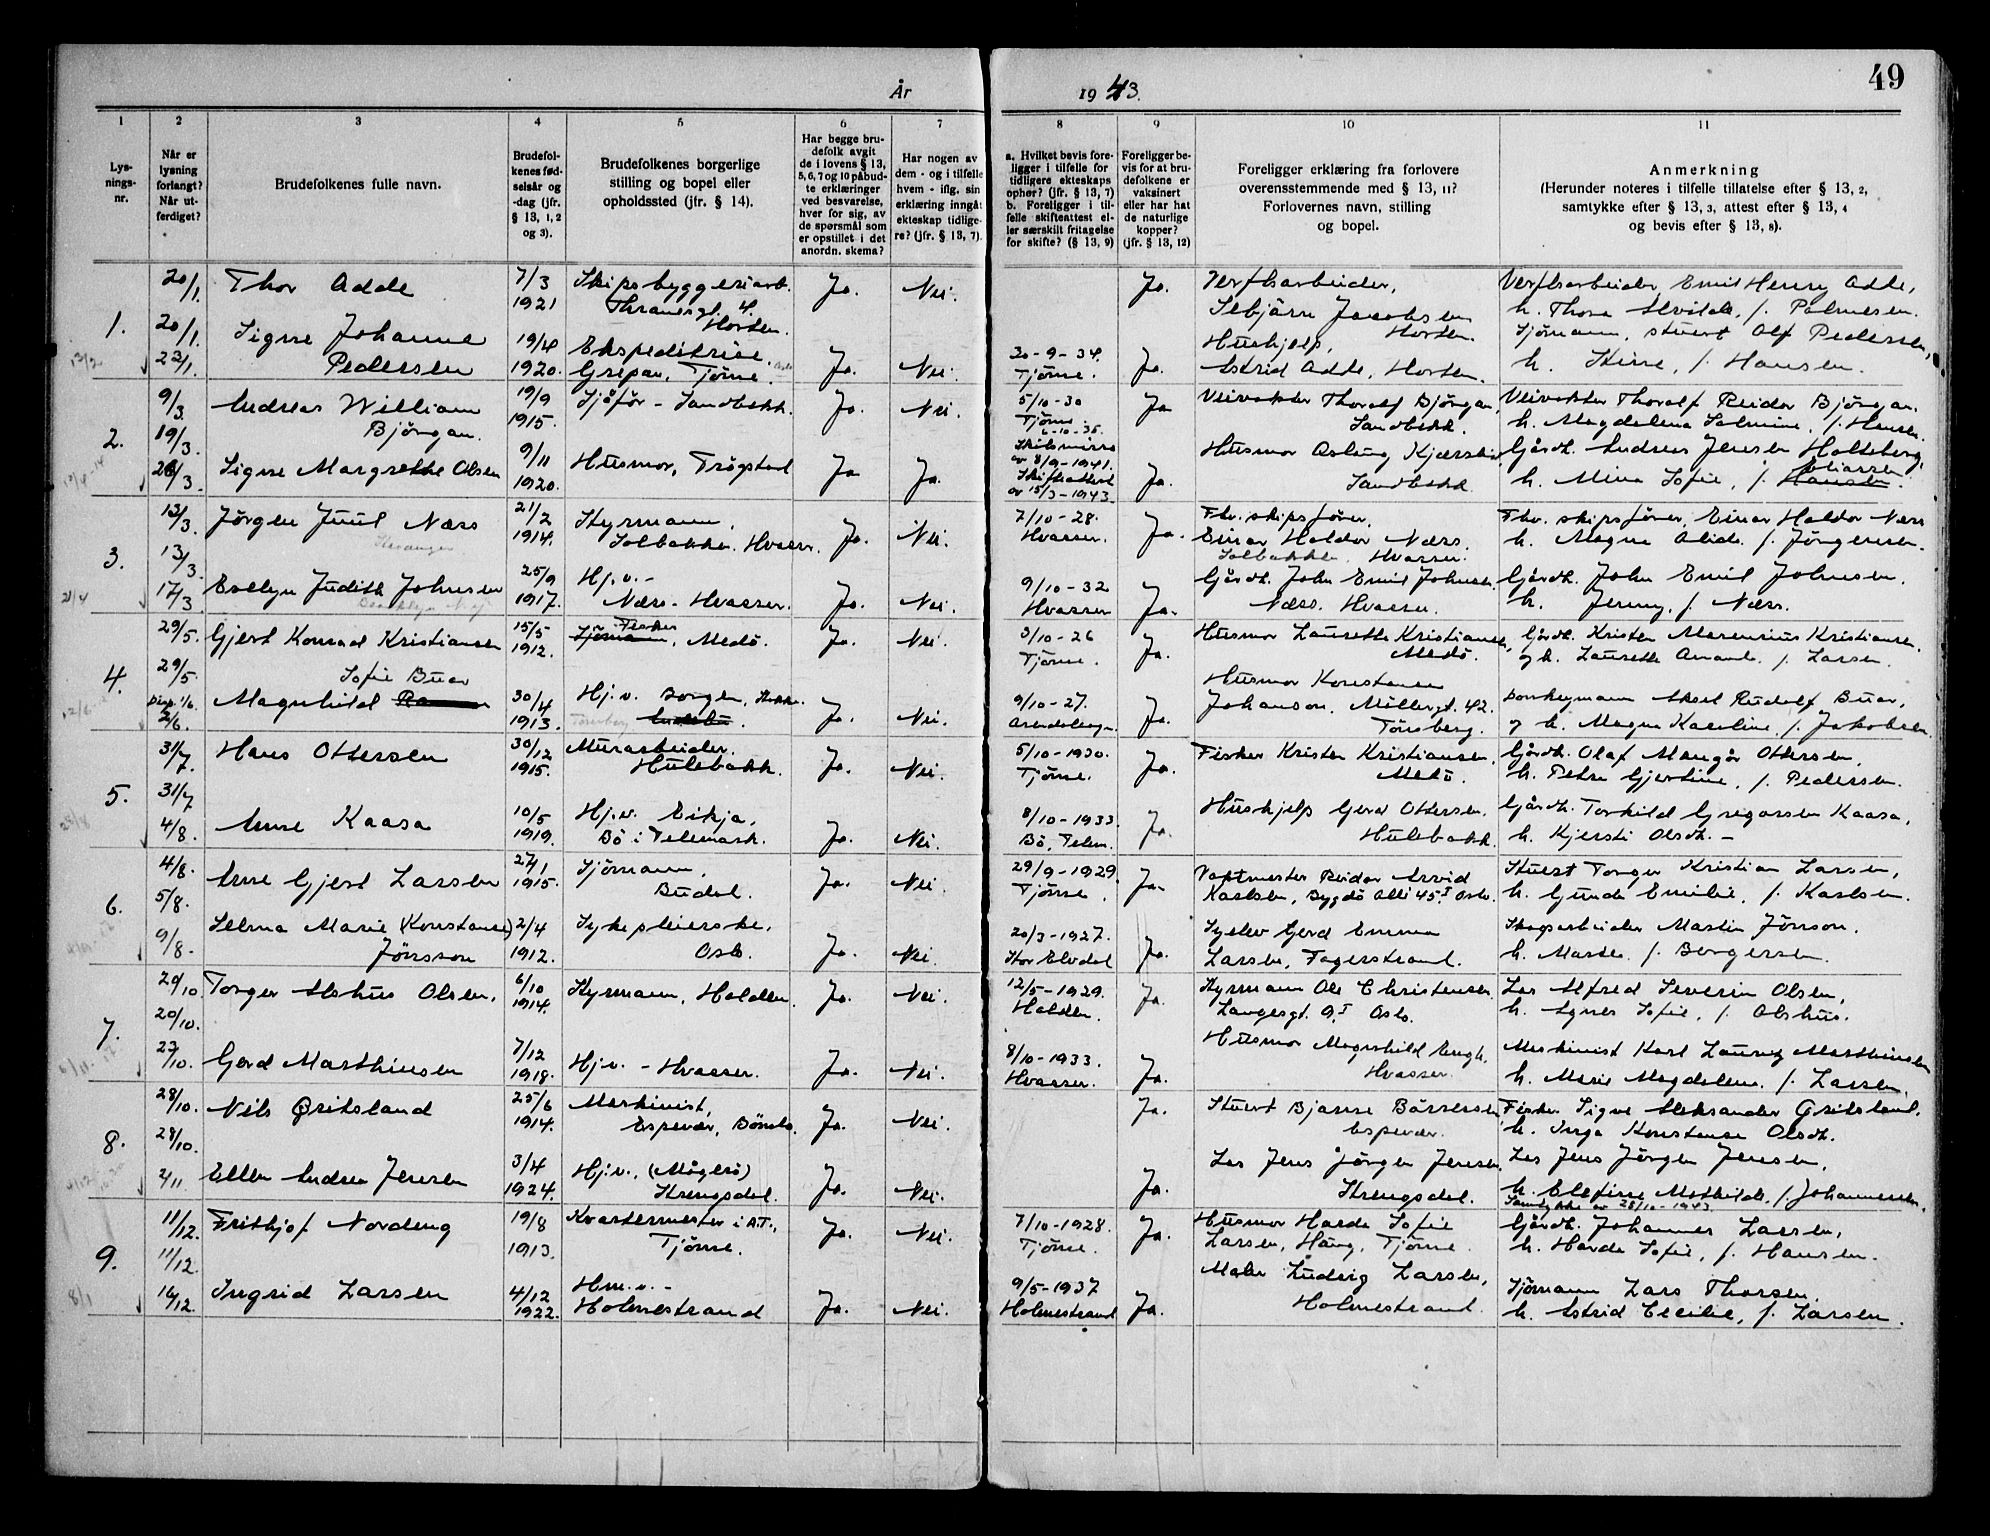 År
1943.
49
1
2
3
4
5
6
7
8
9
10
11
Lys-
nings-
nr.
Når er
lysning
forlangt?
Når ut-
ferdiget?
Brudefolkenes fulle navn.
Brudefol-
kenes fød-
selsår og
-dag (jfr.
§ 13, 1, 2
og 3).
Brudefolkenes borgerlige
stilling og bopel eller
opholdssted (jfr. § 14).
Har begge bru-
defolk avgit
de i lovens § 13,
5, 6, 7 og 10 påbud-
te erklæringer
ved besvarelse,
hver for sig, av
de spørsmål som
er opstillet i det
anordn. skema?
Har nogen av
dem - og i tilfelle
hvem - iflg. sin
erklæring inngåt
ekteskap tidlige-
re? (jfr. § 13, 7).
a. Hvilket bevis fore-
ligger i tilfelle for
tidligere ekteskaps
ophør? (jfr. § 13, 7)
b. Foreligger i til-
felle skifteattest el-
ler særskilt fritagelse
for skifte? (§ 13, 9)
Foreligger be-
vis for at bru-
defolkene er
vaksinert
eller har hat
de naturlige
kopper?
(jfr. § 13, 12)
Foreligger erklæring fra forlovere
overensstemmende med § 13, 11?
Forlovernes navn, stilling
og bopel.
Anmerkning
(Herunder noteres i tilfelle tillatelse efter § 13, 2,
samtykke efter § 13, 3, attest efter § 13, 4
og bevis efter § 13, 8).
1.
20/1.
Thor Adde
7/3
1921
Skipsbyggeriarb.
Thranesgt. 4.
Horten.
Ja.
Nei.
Ja.
Verftsarbeider,
Jacobsen
Horten.
Verftsarbeider Emil Henry Adde,
h. Thora Alvilde, f. Palmesen.
20/1.
23/1.
Signe Johanne
Pedersen
19/4
1920.
Ekspeditrise.
Gripan, Tjøme.
Ja.
Nei.
30-9-34.
Tjøme.
Ja.
Hushjelp,
Astrid Adde, Horten.
Sjømann, stuert Olf Pedersen,
h. Stine, f. Hansen.
2.
9/3.
Andreas William
Bjørgan.
19/9
1915.
Sjåfør - Sandbekk.
Ja.
Nei.
5/10-30
Tjøme.
Ja
Veivokter Thoralf Bjørgan,
Sandbekk.
Veivokter Thoralf Reidar Bjørgan.
h. Magdalena Salmine, f. Hansen.
19/3.
26/3.
Signe Margrethe Olsen
9/11
1920.
Husmor, Trøgstad
Ja
Ja.
6-10-35.
Skilsmisse
av 8/9-1941.
Skifteattest
av 15/3-1943.
Ja.
Husmor Aslaug
Sandbekk
Gårdbr. Andreas Jensen Holteberg,
h. Mina Sofie, f. Hansen.
3.
13/3.
Jørgen Juul Næss
21/2
1914.
Styrmann,
Solbakken, Hvasser.
Ja.
Nei.
7/10-28.
Hvasser.
Ja.
Fhv. skipsfører,
Einar Haldor Næss.
Solbakken Hvasser.
Fhv. skipsfører, Einar Haldor Næss
h. Magna Alida f. Jørgensen.
13/3.
17/3
Evelyn Judith Johnsen
25/9
1917.
Hj.v.-
Næss - Hvasser.
Ja.
Nei.
9/10-32
Hvasser
Ja.
Gårdb. John Emil Johnsen.
Næss. Hvasser.
Gårdb. John Emil Johnsen.
h. Jenny, f. Næss.
4.
29/5.
Gjert Konrad Kristiansen
15/5
1912.
Fisker
Sjømann, Medø.
Ja.
Nei.
3/10-26
Tjøme.
Ja.
Husmor Laurette Kristiansen,
Medø.
Gårdb. Kristen Marenius Kristiansen
og h. Laurette Amanda f. Larsen.
29/5.
Disp. 1/6.
2/6.
Sofie Buer
Magnhild
30/4
1913.
Hj.v. Borgen,
Ja.
Nei.
9/10-27.
Ja.
Husmor Konstanse
Johanson, Møllergt. 42.
Tønsberg.
Donkeymann Aksel Rudolf Buer,
og h. Magna Karoline, f. Jakobsen.
5.
31/7.
Hans Ottersen
30/12
1915.
Murarbeider.
Hulebakk.
Ja.
Nei.
5/10-1930.
Tjøme.
Ja.
Fisker Kristen Kristiansen,
Medø.
Gårdb. Olaf Mangør Ottersen,
h. Petra Gjertine, f. Pedersen.
31/7
4/8.
Anne Kaasa
10/5
1919.
Hj.v. Eikja,
Bø i Telemark.
Ja.
Nei.
8/10-1933.
Bø, Telem.
Ja.
Hushjelp Gerd Ottersen.
Hulebakk.
Gårdb. Torkild Gregarsen Kaasa,
h. Kjersti Olsdt. -
6.
4/8.
Arne Gjert Larsen
27/1
1915.
Sjømann,
Budal.
Ja.
Nei.
29/9-1929.
Tjøme.
Ja.
Vaktmester Reidar Arvid
Karlsen, Bygdø Alle 45I Oslo.
Stuert Torger Kristian Larsen,
h. Gunda Emilie, f. Karlsen.
5/8.
9/8.
Selma Marie (Konstanse)
Jönsson
2/4
1912.
Sykepleierske.
Oslo.
Ja.
Nei.
20/3-1927.
Stor Elvdal
Ja.
Sylev Gerd Emma
Larsen, Fagerstrand.
Skogsarbeider Martin Jönson.
h. Marte f. Borgersen.
7.
20/10.
Torger Alshus Olsen.
6/10
1914.
Styrmann, Halden.
Ja.
Nei.
12/5-1929.
Halden.
Ja.
Styrmann Ole Christensen.
Langesgt. 9I Oslo.
Los Alfred Severin Olsen,
h. Agnes Sofie, f. Alshus.
20/10.
23/10.
Gerd Marthinsen
7/12
1918.
Hj.v. - Hvasser.
Ja.
Nei.
8/10-1933.
Hvasser.
Ja.
Husmor Magnhild Engh,
Hvasser.
Maskinist Karl Lauritz Marthinsen
h. Marie Magdalena, f. Larsen.
8.
28/10.
Nils Gritsland
25/6
1914.
Maskinist,
Espevær, Bömlo.
Ja.
Nei.
Ja.
Stuert Bjarne Børresen
Espevær.
Fisker Sigve Aleksander Gritsland.
h. Inga Konstanse Olsdt.
28/10.
2/11.
Ellen Andrea Jensen
3/4
1924.
Hj.v. (Mågerö)
Strengsdal.
Ja.
Nei.
Ja.
Los Jens Jørgen Jensen.
Strengsdal.
Los Jens Jørgen Jensen,
h. Elefine Mathilde, f. Johannesen.
Samtykke av 28/10-1943.
9.
11/12.
Frithjof Nordeng
19/8
1913.
Kvartermester i A.T.,
Tjøme.
Ja.
Nei.
7/10-1928.
Tjøme.
Ja.
Husmor Harda Sofie
Larsen, Haug, Tjøme.
Gårdb. Johannes Larsen,
h. Harda Sofie, f. Hansen.
11/12.
16/12.
Ingrid Larsen
4/12
1922.
Hm.v.-
Holmestrand
Ja.
Nei.
9/5-1937
Holmestrand
Ja.
Maler Ludvig Larsen,
Holmestrand.
Sjømann Lars Thorsen.
h. Astrid Cecilie, f. Larsen.